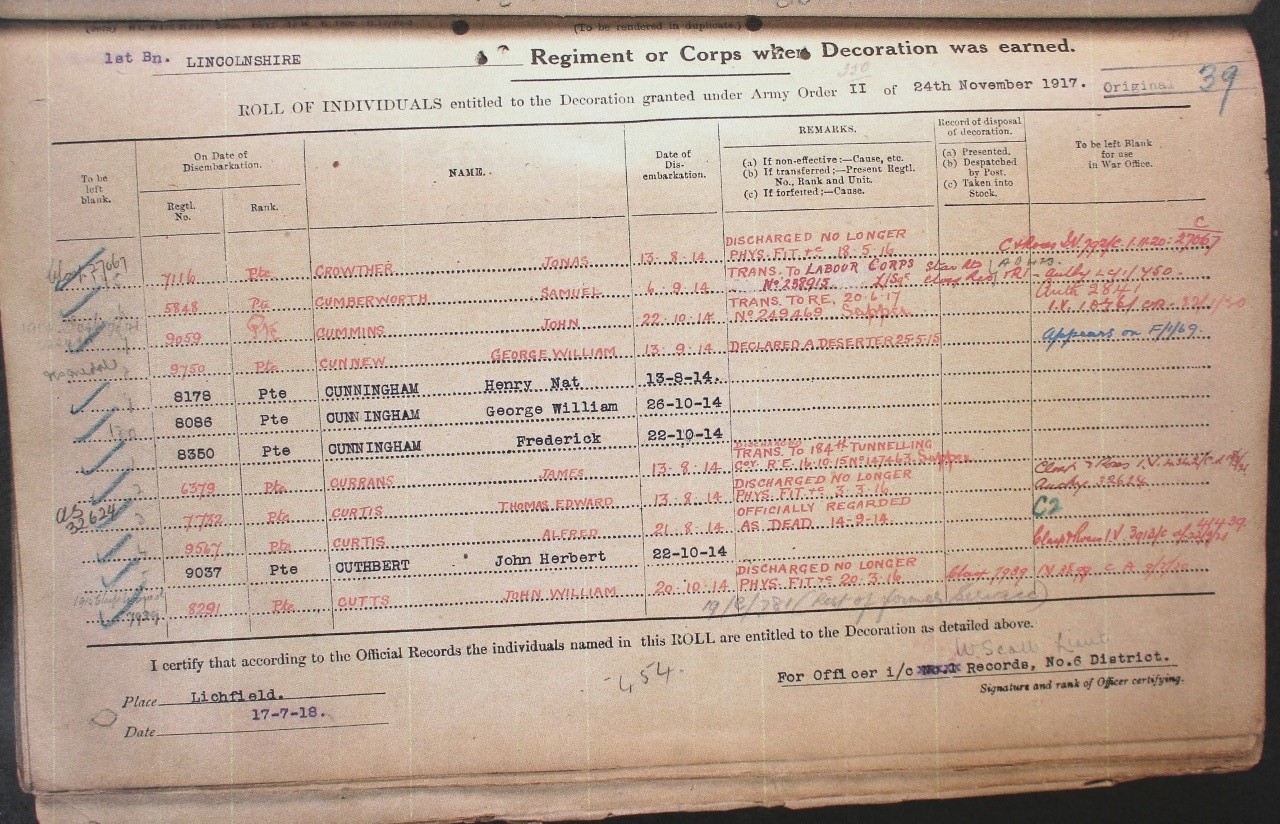 (To be rendered in duplicate.)
1st Bn. LINCOLNSHIRE Regiment or Corps when Decoration was earned.
ROLL OF INDIVIDUALS entitled to the Decoration granted under Army Order II of 24th November 1917. Original 39
To be left blank.
On Date of Disembarkation.
Regtl. No.
Rank.
NAME.
Date of Dis-embarkation.
REMARKS.
(a) If non-effective:—Cause, etc.
(b) If transferred:—Present Regtl. No., Rank and Unit.
(c) If forfeited:—Cause.
Record of disposal of decoration.
(a) Presented.
(b) Despatched by Post.
(c) Taken into Stock.
To be left Blank for use in War Office.
7116 Pte CROWTHER JONAS 13·8·14 DISCHARGED NO LONGER PHYS. FIT &c 18·5·16
5848 Pte CUMBERWORTH SAMUEL 6·9·14 TRANS. TO LABOUR CORPS
9059 Pte CUMMINS JOHN 22·10·14 TRANS. TO RE, 20·6·17 No 249469 Sapper
9750 Pte CUNNEW GEORGE WILLIAM 13·9·14 DECLARED A DESERTER 25·5·15 Appears on F/1/69.
8178 Pte CUNNINGHAM Henry Nat 13-8-14.
8086 Pte CUNNINGHAM George William 26-10-14
8350 Pte CUNNINGHAM Frederick 22-10-14
6379 Pte CURRANS JAMES 13·8·14 TRANS. TO 184th TUNNELLING Coy. R.E. 16·10·15 No 147463 Sapper
7732 Pte CURTIS THOMAS EDWARD 13·8·14 DISCHARGED NO LONGER PHYS. FIT &c 3·3·16
9567 Pte CURTIS ALFRED 21·8·14 OFFICIALLY REGARDED AS DEAD 14-9-14 C2
9037 Pte CUTHBERT John Herbert 22-10-14
8291 Pte CUTTS JOHN WILLIAM 20·10·14 DISCHARGED NO LONGER PHYS. FIT &c 20·3·16
I certify that according to the Official Records the individuals named in this ROLL are entitled to the Decoration as detailed above.
W Scott Lieut
454.
For Officer i/c Records, No.6 District.
Signature and rank of Officer certifying.
Place Lichfield.
Date 17-7-18.